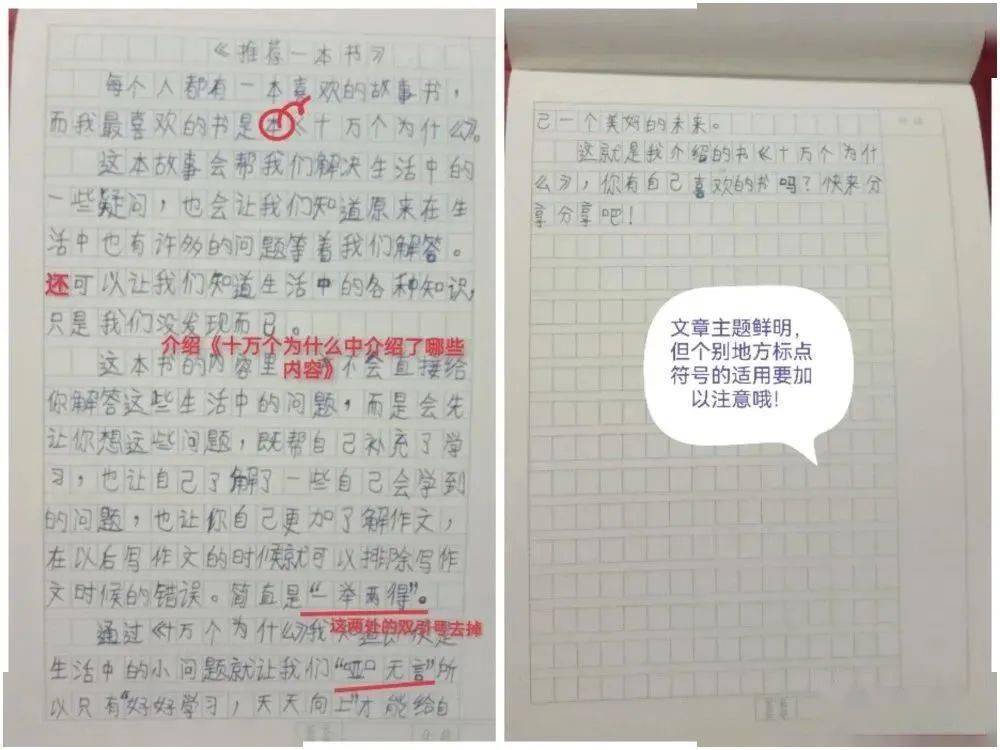 《推荐一本书》
每个人都有一本喜欢的故事书，
而我最喜欢的书是本《十万个为什么》。
这本故事会帮我们解决生活中的
一些疑问，也会让我们知道原来在生
活中也有许多的问题等着我们解答。
还可以让我们知道生活中的各种知识，
只是我们没发现而已。
介绍《十万个为什么中介绍了哪些
内容》
这本书的内容里 不会直接给
你解答这些生活中的问题，而是会先
让你想这些问题，既帮自己补充了学
习，也让自己了解了一些自己会学到
的问题，也让你自己更加了解作文，
在以后写作文的时候就可以排除写作
文时候的错误。简直是“一举两得”。
这两处的双引号去掉
通过《十万个为什么》我 是
生活中的小问题就让我们“哑口无言”所
以只有“好好学习，天天向上”才能给自
己一个美好的未来。
这就是我介绍的书《十万个为什
么》，你有自己喜欢的书吗？快来分
享分享吧！
文章主题鲜明，
但个别地方标点
符号的适用要加
以注意哦！